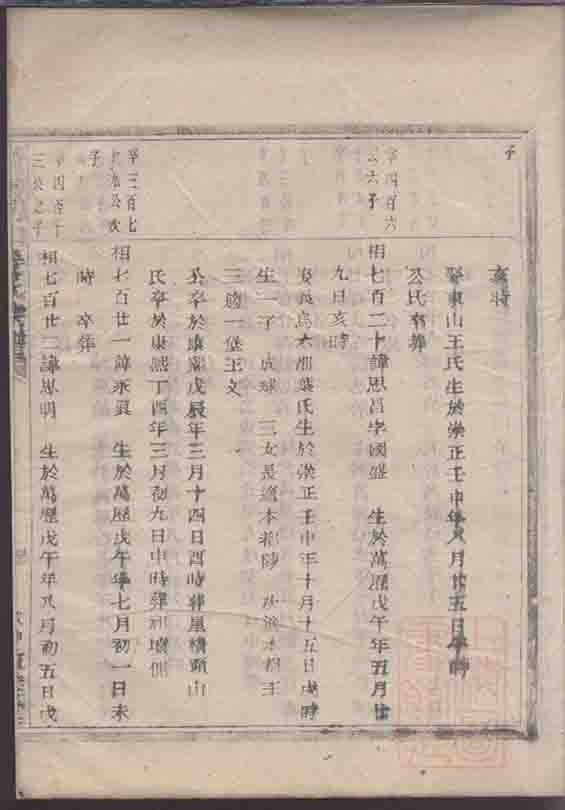 子
亥時
娶東山王氏生於崇正壬申年八月廿五日午時
公氏卒葬
辛四百六
公六子
相七百二十諱思昌字國盛 生於萬歷戊午年五月廿
九日亥時
葉氏生於崇正壬申年十月十五日戌時
生一子 成球 三女長適本都
三適一堡王文
公卒於康熙戊辰年三月十四日酉時葬里橫頭山
氏卒於康熙丁酉年三月初九日申時葬祖墳側
辛三百七
公次
子
相七百廿一諱永 生於萬歷戊午年七月初一日未
時 卒葬
辛四百十
三公之子
相七百廿二諱思明 生於萬歷戊午年八月初五日戌